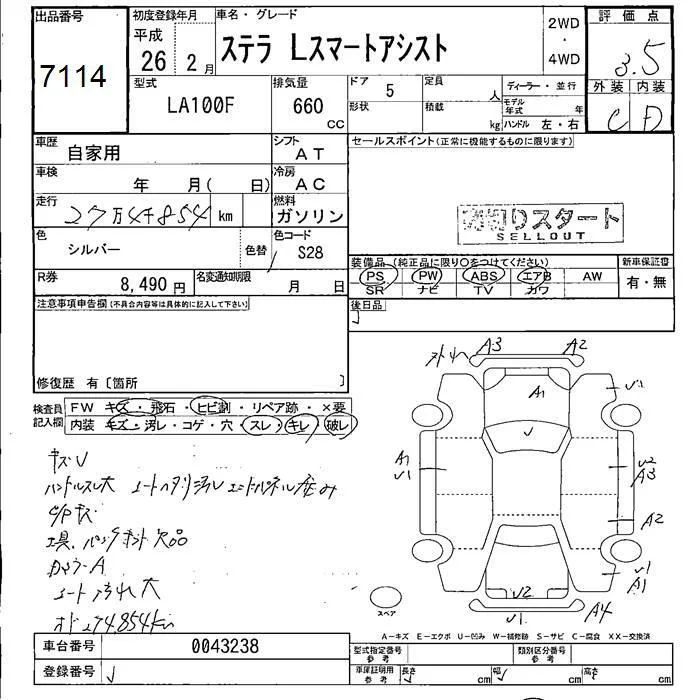 出品番号
7114
初度登録年月
平成
26 2 月
車名・グレード
ステラ Lスマートアシスト
2WD
・
4WD
評価点
3.5
外装 内装
C D
型式
LA100F
排気量
660
CC
ドア
5
定員
人
形状
積載
kg
ディーラー・並行
モデル年式
年
ハンドル 左・右
車歴
自家用
シフト
AT
車検
年 月( 日)
冷房
AC
走行
27万4千854 km
燃料
ガソリン
色
シルバー
色替
色コード
S28
R券
8,490 円
名変通知期限
月 日
セールスポイント(正常に機能するものに限ります)
売切りスタート
SELLOUT
装備品(純正品に限り○をつけてください)
PS PW ABS エアB AW
SR ナビ TV カワ
新車保証書
有・無
後日品
注意事項申告欄(不具合内容等は具体的に記入して下さい)
修復歴 有〔箇所 〕
検査員
記入欄
FW キズ・飛石・ヒビ割・リペア跡・×要
内装 キズ・汚レ・コゲ・穴・スレ・キレ・破レ
キズU
ハンドルスレ大
C/Pキズ
工具、パンクキット欠品
シート汚れ大
オド274.854km
A3 A2
A1
U1
U
A1
U1
U2
A3
A2
U1
A1
U2
U1
A4
スペア
A-キズ E-エクボ U-凹み W-補修跡 S-サビ C-腐食 XX-交換済
車台番号
0043238
登録番号
型式指定番号
参考
類別区分番号
参考
車庫証明用
参考
長さ cm
幅 cm
高さ cm